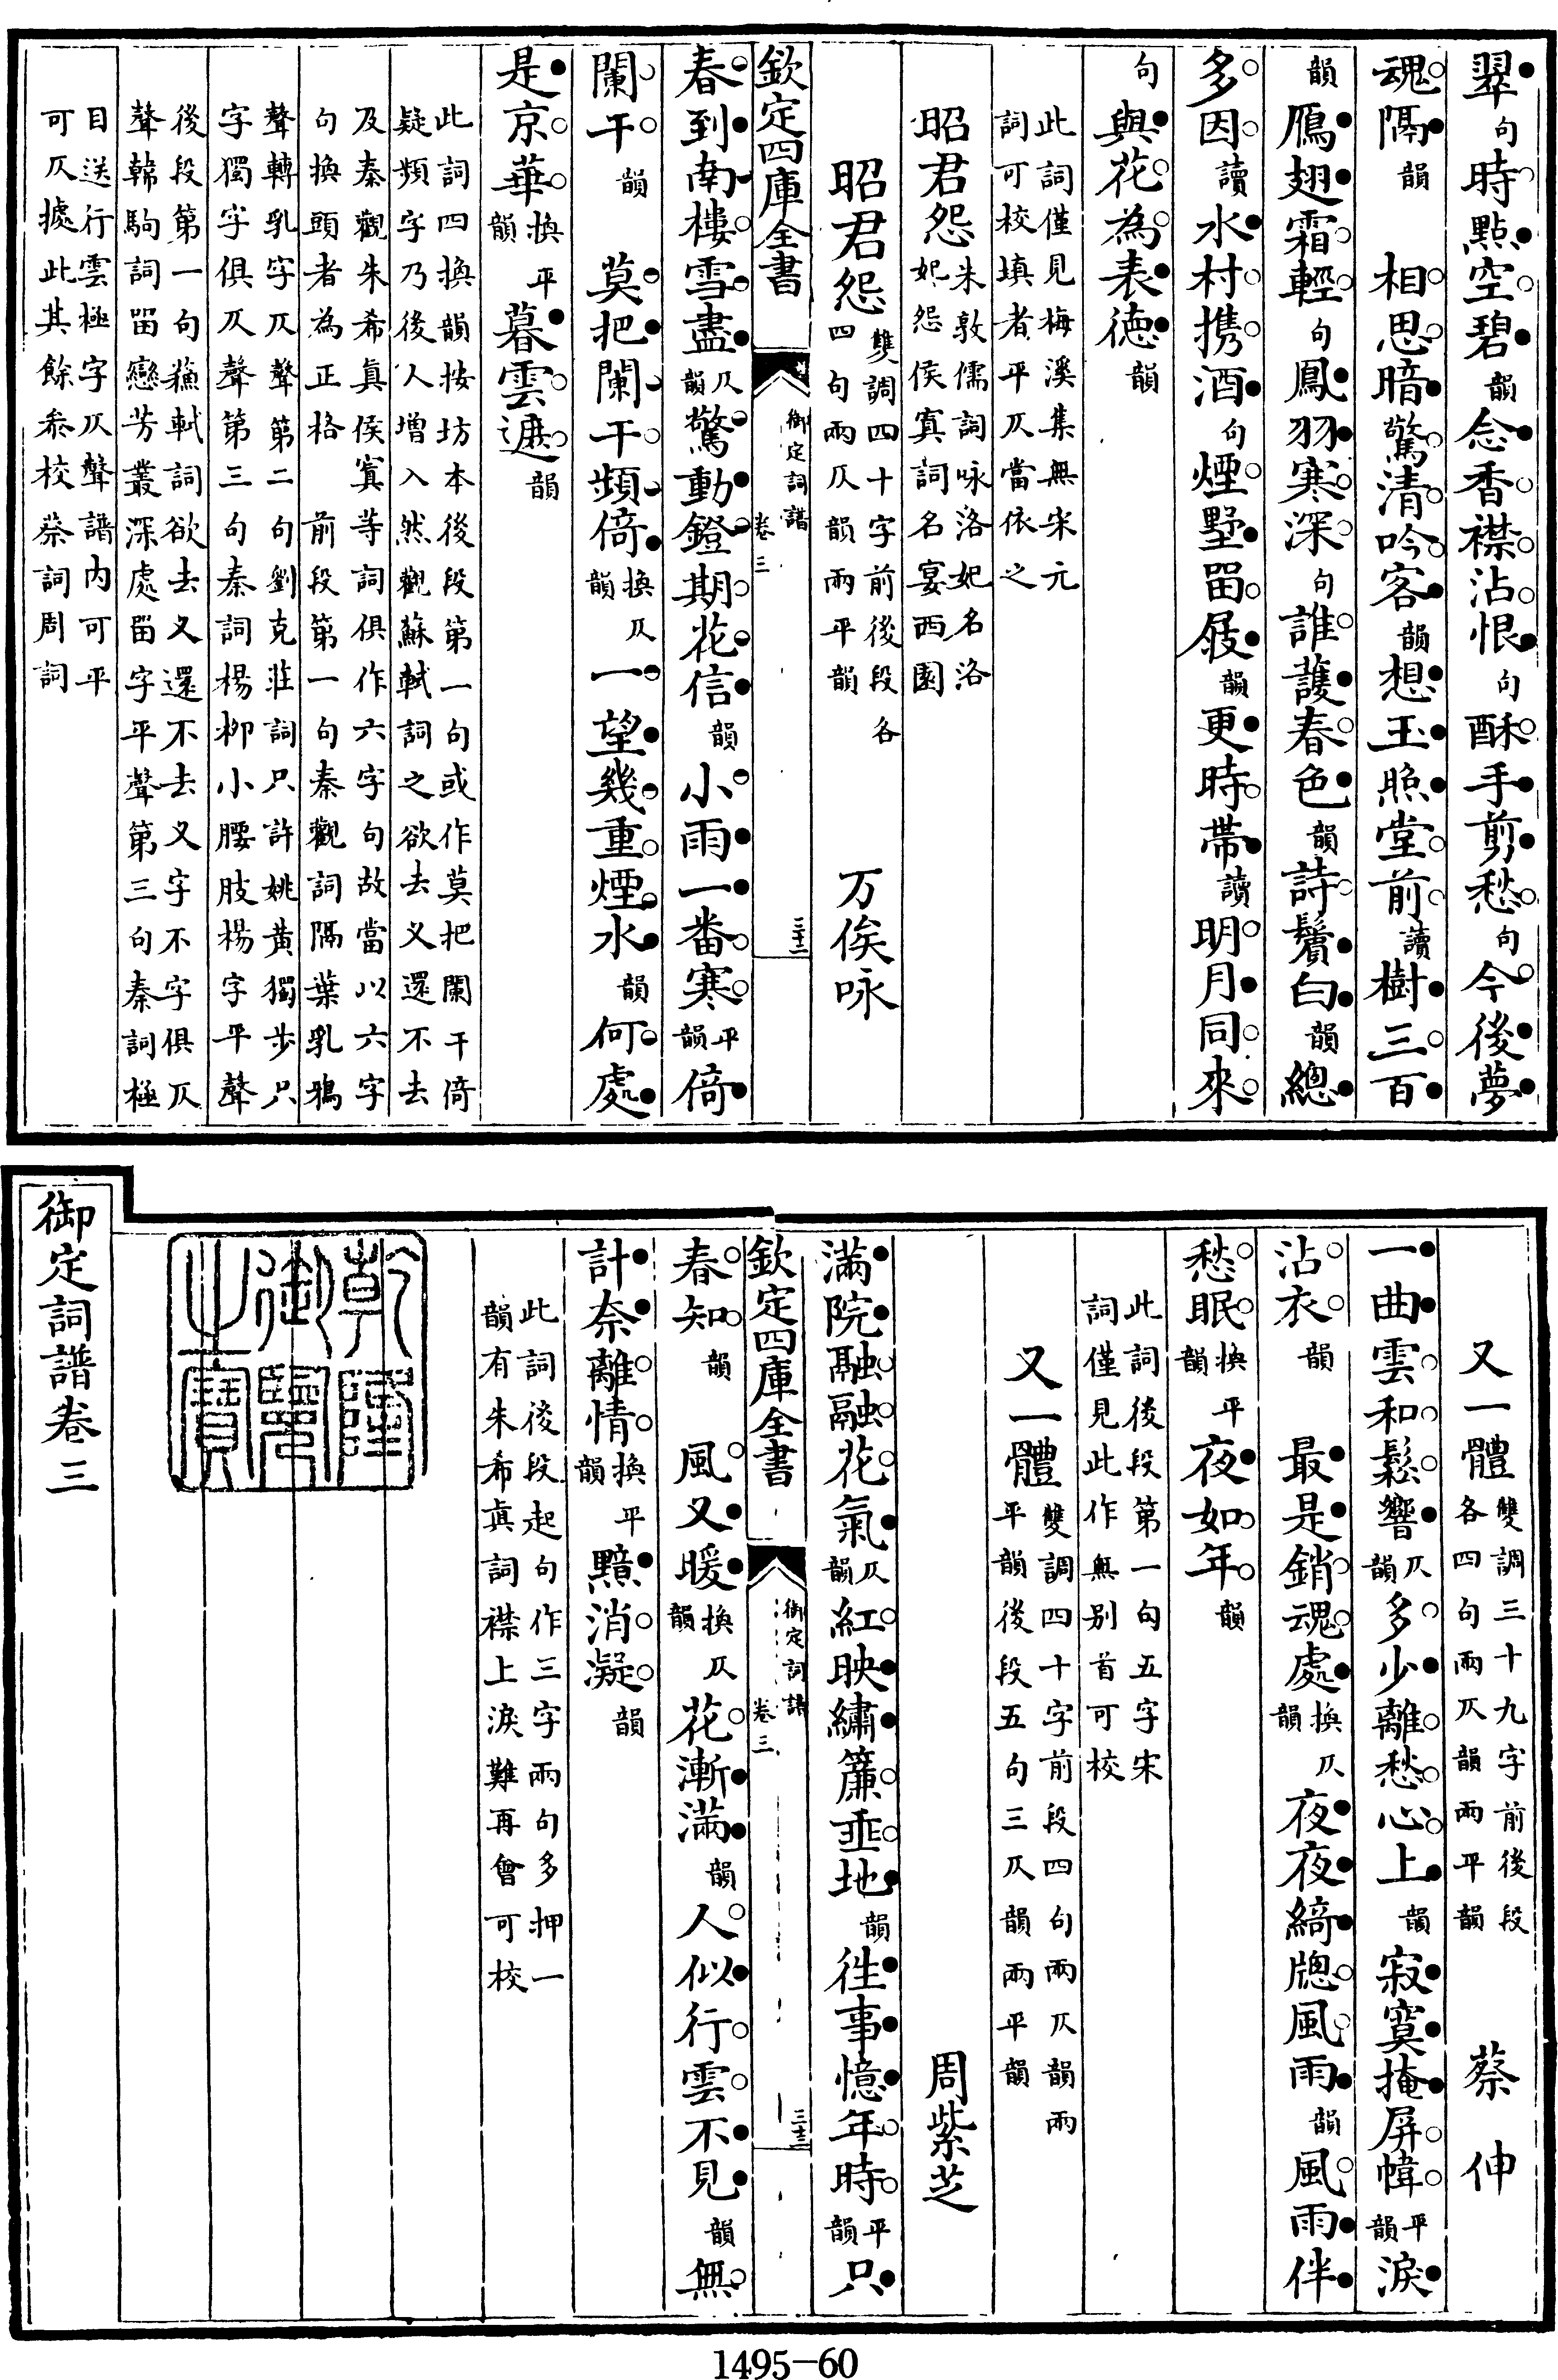 翠句時點空碧韻念香襟沾恨句酥手剪愁句今後夢
魂隔韻　相思暗驚清吟客韻想玉照堂前讀樹三百
韻鴈翅霜輕句鳳羽寒深句誰護春色韻詩鬢白韻總
多因讀水村携酒句煙墅畱屐韻更時帶讀明月同來
句與花為表德韻
此詞僅見梅溪集無宋元
詞可校填者平仄當依之
昭君怨朱敦儒詞咏洛妃名洛
妃怨侯寘詞名宴西園
昭君怨雙調四十字前後段各
四句兩仄韻兩平韻
万俟咏
欽定四庫全書
御定詞譜
卷三
三十二
春到南樓雪盡仄韻驚動鐙期花信韻小雨一番寒平韻倚
闌干韻　莫把闌干頻倚換仄韻一望幾重煙水韻何處
是京華換平韻暮雲遮韻
此詞四換韻按坊本後段第一句或作莫把闌干倚
疑頻字乃後人增入然觀蘇軾詞之欲去又還不去
及秦觀朱希真侯寘等詞俱作六字句故當以六字
句換頭者為正格　前段第一句秦觀詞隔葉乳鴉
聲轉乳字仄聲第二句劉克莊詞只許姚黃獨步只
字獨字俱仄聲第三句秦詞楊柳小腰肢楊字平聲
後段第一句蘇軾詞欲去又還不去又字不字俱仄
聲韓駒詞畱戀芳叢深處畱字平聲第三句秦詞極
目送行雲極字仄聲譜內可平
可仄據此其餘叅校蔡詞周詞
又一體雙調三十九字前後段
各四句兩仄韻兩平韻
蔡伸
一曲雲和鬆響仄韻多少離愁心上韻寂寞掩屏幃平韻淚
沾衣韻　最是銷魂處換仄韻夜夜綺牕風雨韻風雨伴
愁眠換平韻夜如年韻
此詞後段第一句五字宋
詞僅見此作無别首可校
又一體雙調四十字前段四句兩仄韻兩
平韻後段五句三仄韻兩平韻
周紫芝
滿院融融花氣仄韻紅映繡簾垂地韻徃事憶年時平韻只
欽定四庫全書
御定詞譜
卷三
三十三
春知韻　風又暖換仄韻花漸滿韻人似行雲不見韻無
計奈離情換平韻黯消凝韻
此詞後段起句作三字兩句多押一
韻有朱希真詞襟上淚難再會可校
乾隆御覽之寶
御定詞譜卷三
1495—60